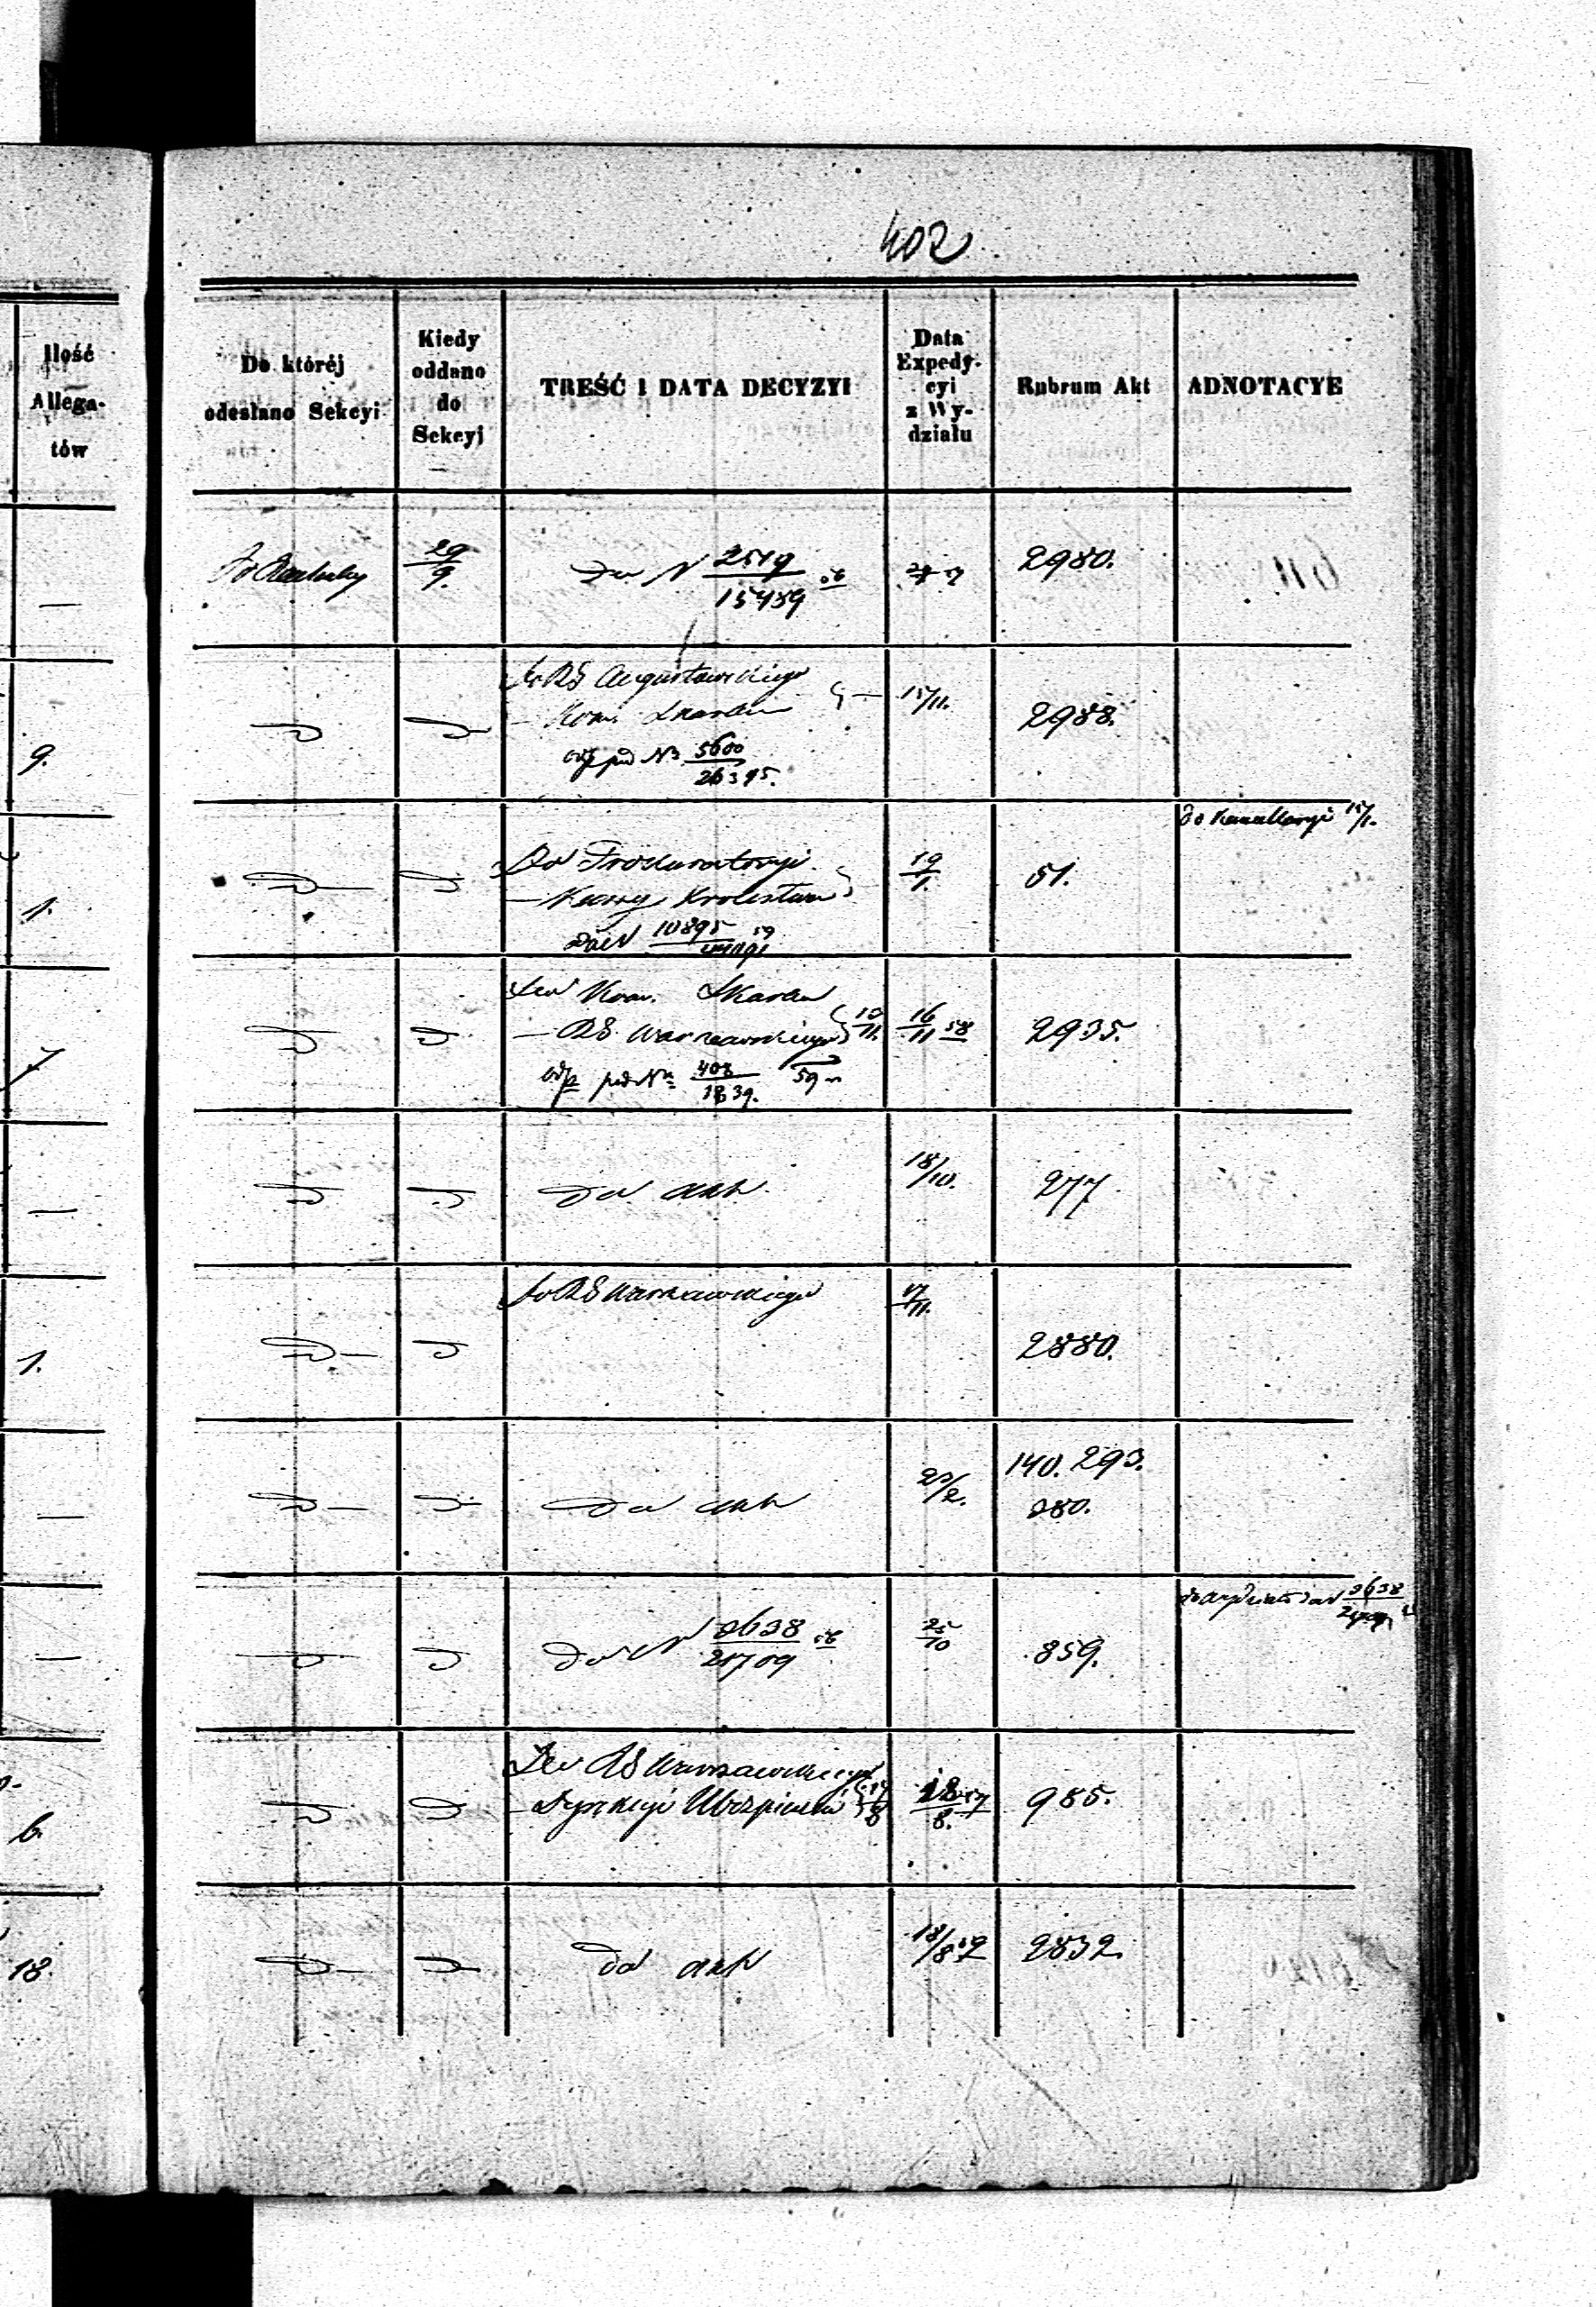 402
Ilość
Allega-
tów
Do któréj
odesłano Sekcyi
Kiedy
oddano
do
Sekcyj
TREŚĆ I DATA DECYZYI
Data
Expedy-
cyi
z Wy-
działu
Rubrum Akt
ADNOTACYE
—
29/9.
Do N 2519/15489 58
2980.
9.
Do RG Augustowskiego
— Kom. Skarbu
odp pod No 5600/26395.
15/11.
2988.
1.
Do Prokuratoryi
— Królestwa
10895 59
19/1.
51.
Do Kancellaryi 15/1.
7
Do Kom. Skarbu
— RG Warszawskiego 10/11.
odp pod No 403/1839. 59
16/11 58
2935.
—
Do akt
18/10.
277
1.
Do RG Warszawskiego
17/11.
2880.
—
Do akt
23/2.
140. 293.
280.
—
Do N 3638/21709 58
25/10
859.
3638
6.
Do RG Warszawskiego
— Dyrekcyi Ubezpieczeń 14/8
18/8. 57
985.
18.
Do akt
18/8 59
2832.